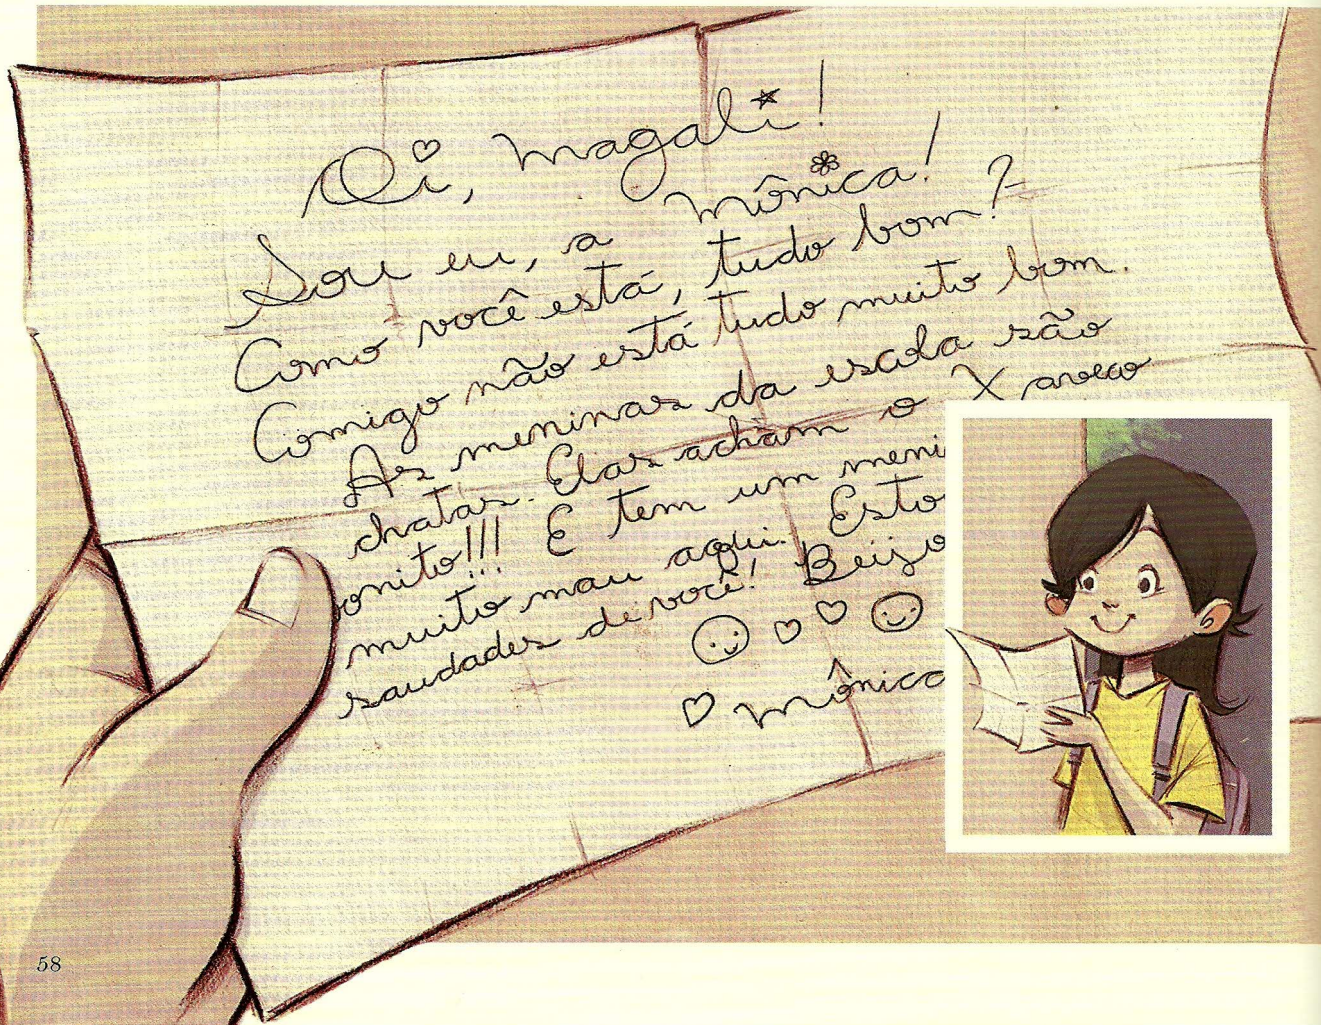 Oi, Magali!
Sou eu, a Mônica!
Como você está, tudo bom?
Comigo não está tudo muito bom.
As meninas da escola são
chatas. Elas acham o Xaveco
onito!!! E tem um meni
muito mau aqui. Esto
saudades de você! Beijo
Mônica
58